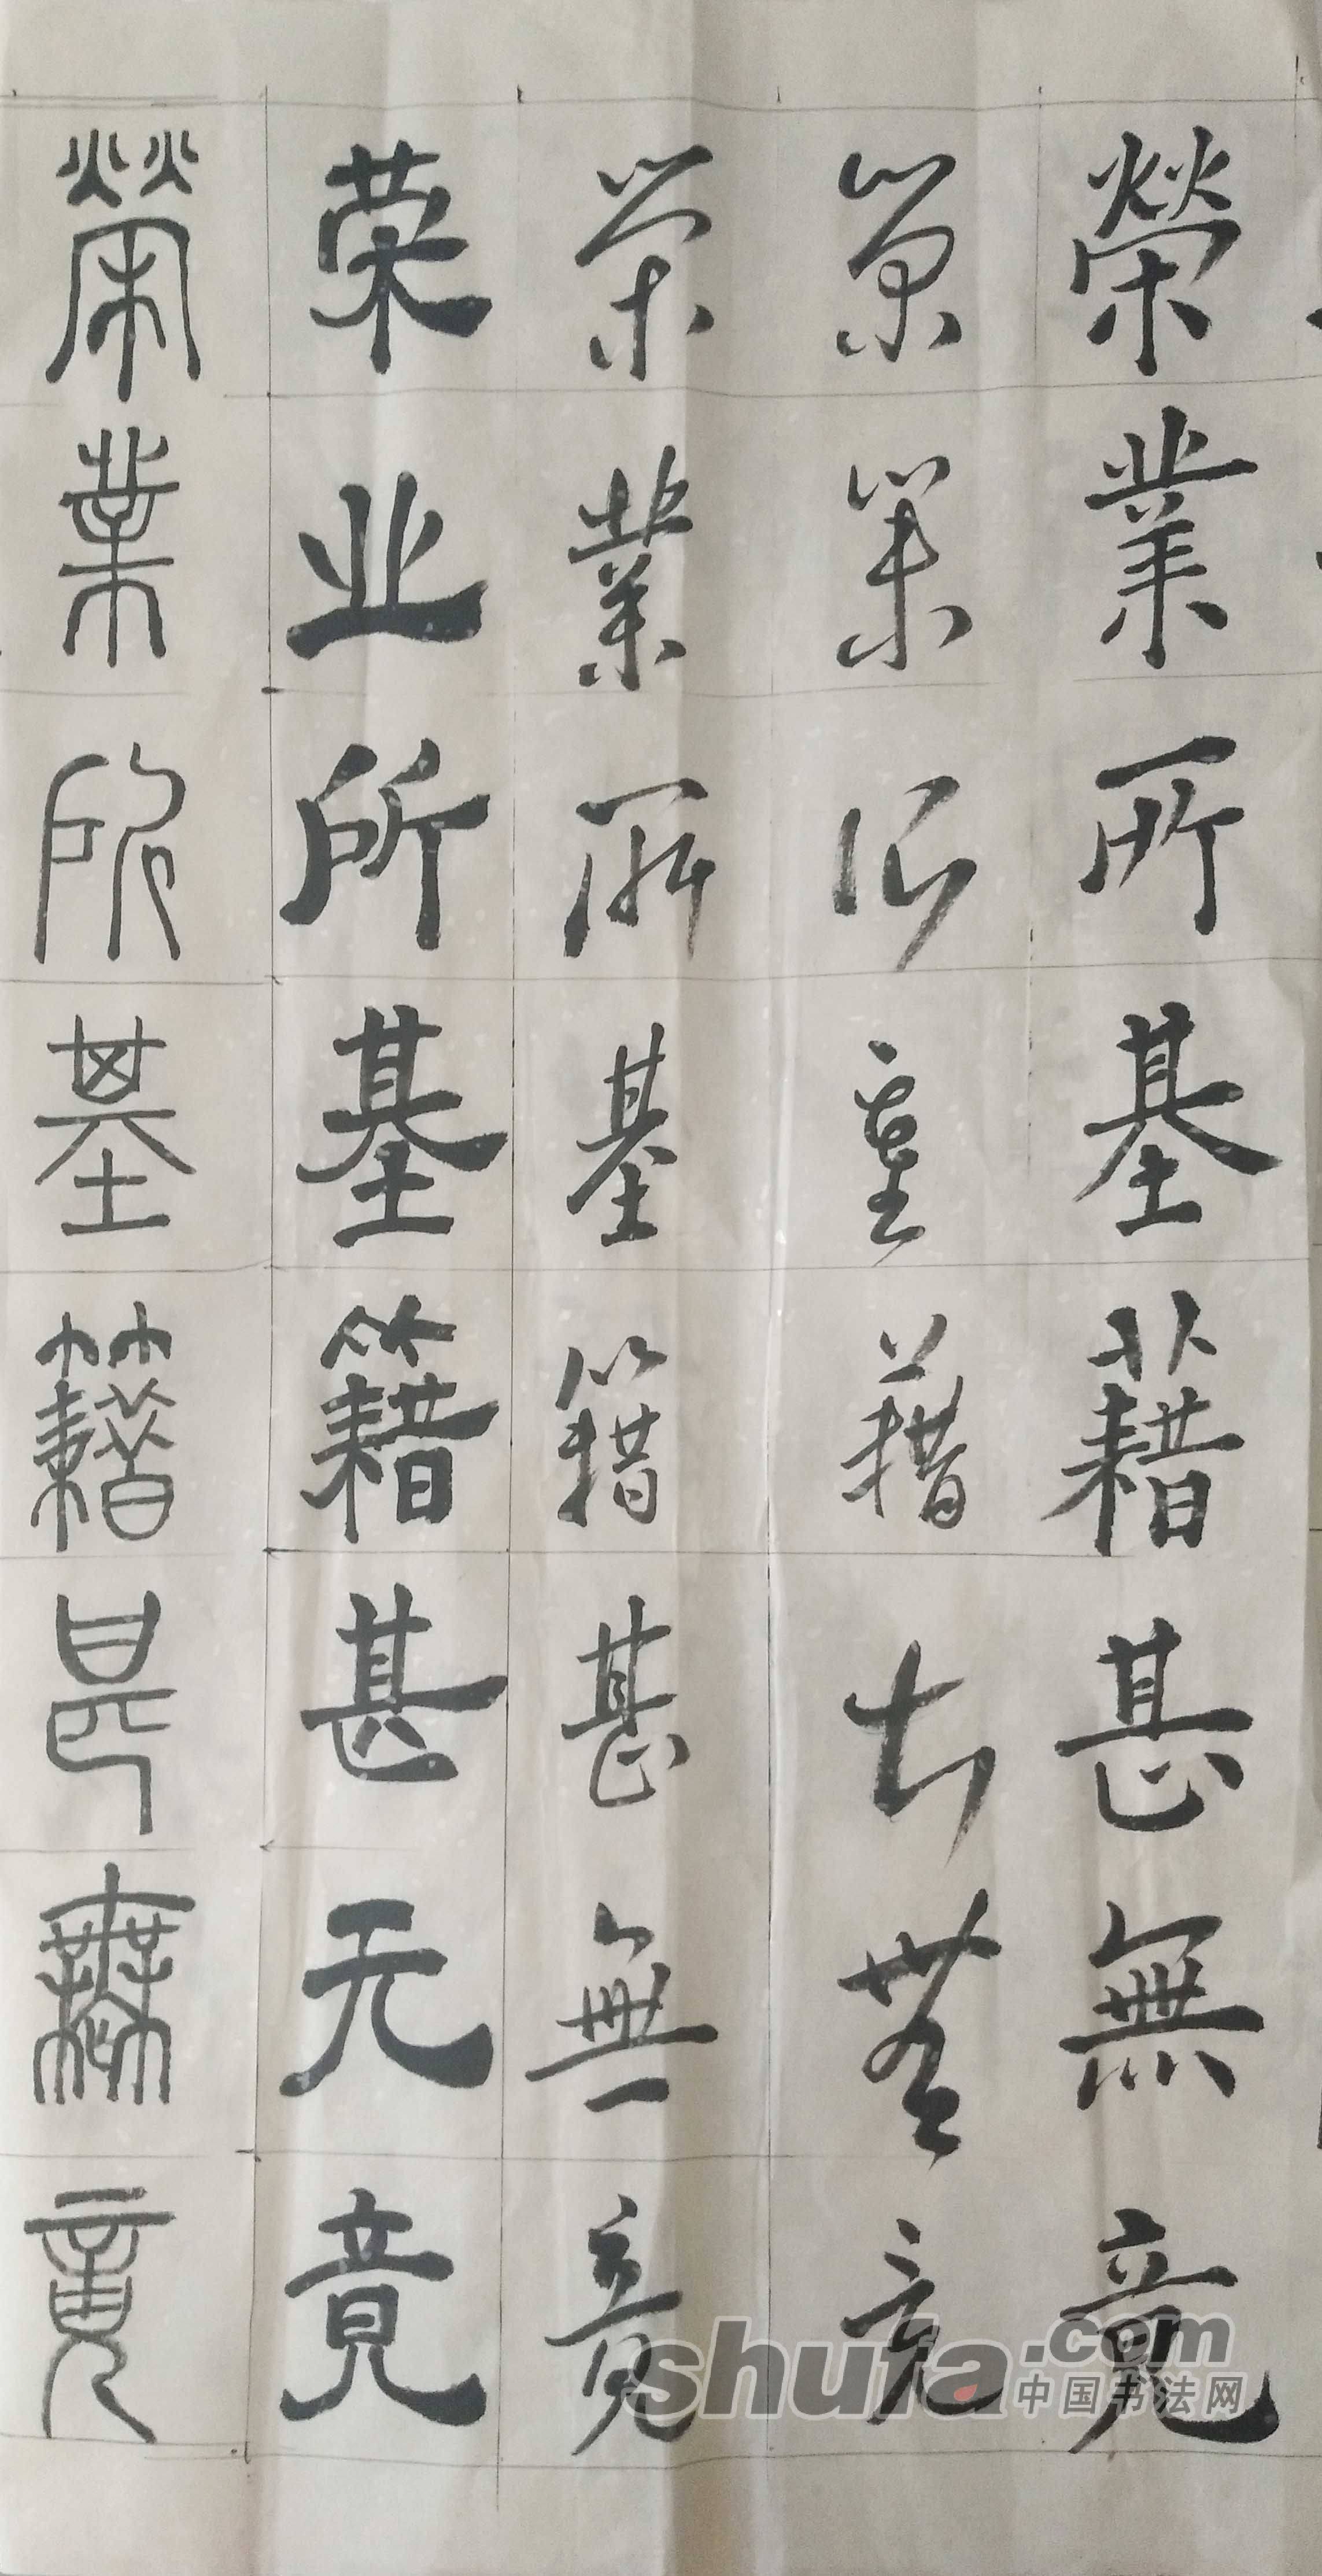 榮業所基藉甚無竟
榮業所基藉甚無竟
榮業所基籍甚無竟
荣业所基籍甚无竟
榮業所基籍甚無竟
shufa.com
中国书法网